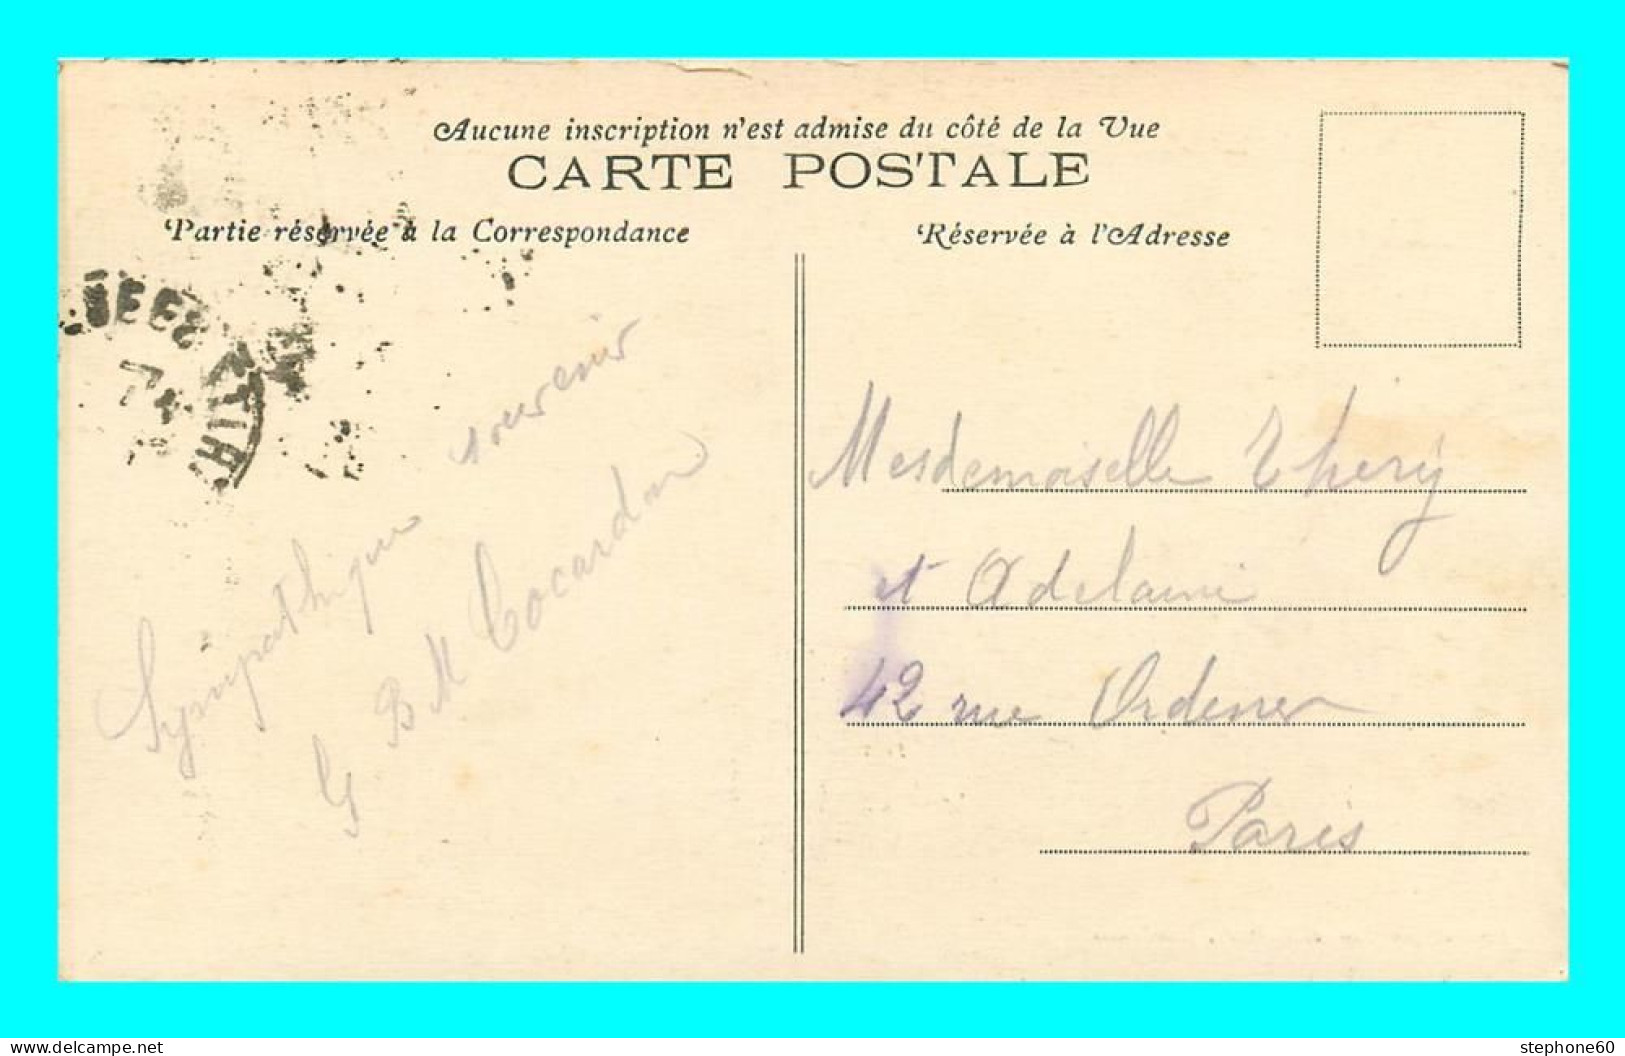 Aucune inscription n'est admise du côté de la Vue
CARTE POSTALE
Partie réservée à la Correspondance
Réservée à l'Adresse
Sympathique souvenir
G B M Cocardon
Mesdemoiselle Thery
et Adelaine
42 rue Ordener
Paris
delcampe.net
stephone60